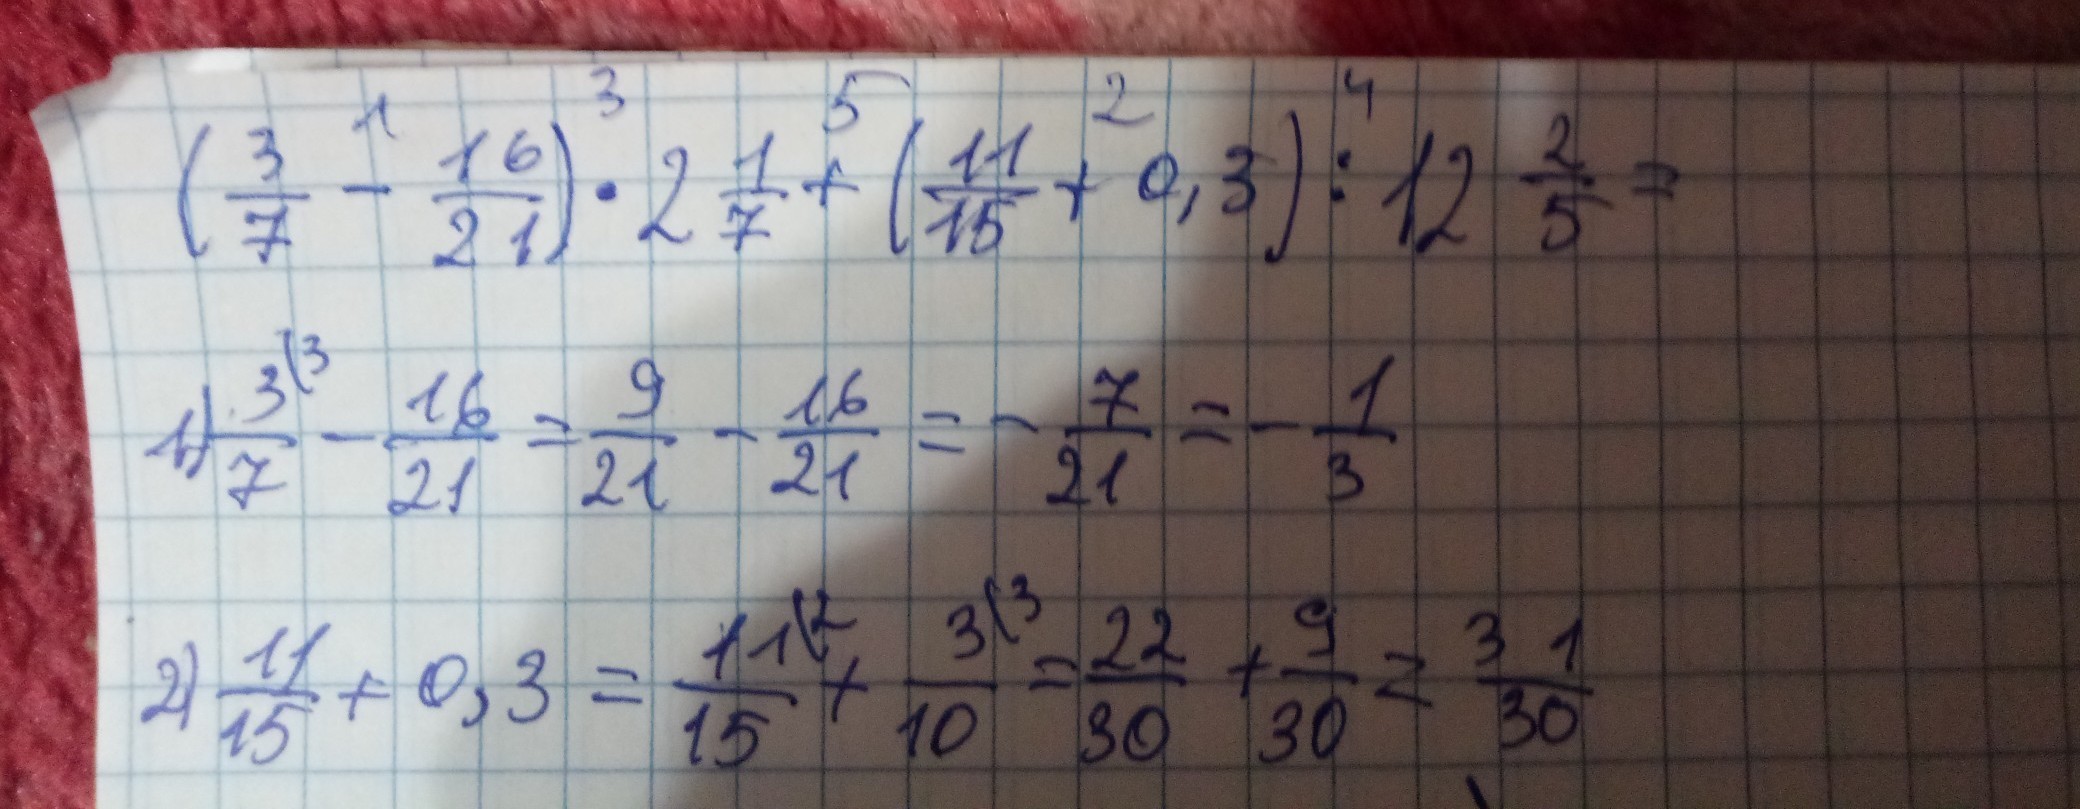 (3/7 -¹ 16/21) ·³ 2 1/7 +⁵ (11/15 +² 0,3) :⁴ 12 2/5 =
1) 3⁽³/7 - 16/21 = 9/21 - 16/21 = - 7/21 = - 1/3
2) 11/15 + 0,3 = 11⁽²/15 + 3⁽³/10 = 22/30 + 9/30 = 31/30